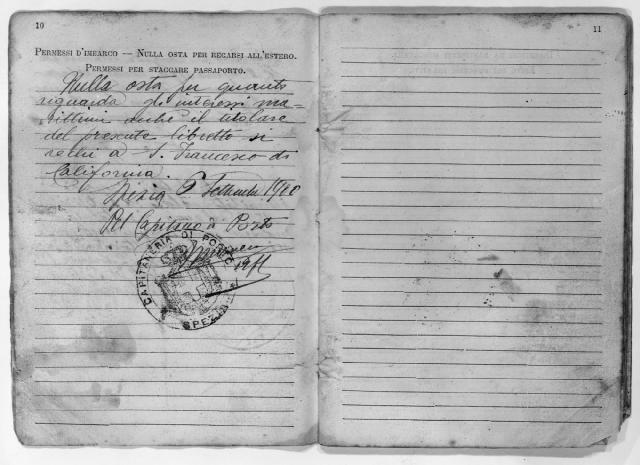 10
PERMESSI D'IMBARCO — NULLA OSTA PER RECARSI ALL'ESTERO.
PERMESSI PER STACCARE PASSAPORTO.
Nulla osta per quanto
riguarda gli interessi ma-
rittimi anche il titolare
del presente libretto si
rechi a S. Francesco di
California.
Spezia 6 Settembre
Pel Capitano di Porto
CAPITANERIA DI PORTO
SPEZIA
11